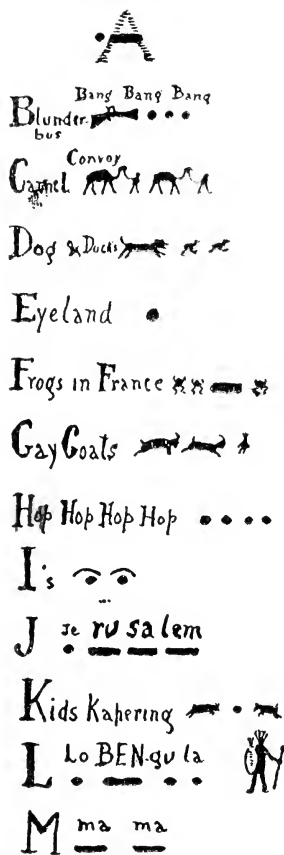 A
Bang Bang Bang
Blunder-
bus
Convoy
Camel
Dog & Ducks
Eyeland
Frogs in France
Gay Goats
Hop Hop Hop Hop
I's
J Je ru sa lem
Kids Kapering
L Lo BEN-gu la
M ma ma